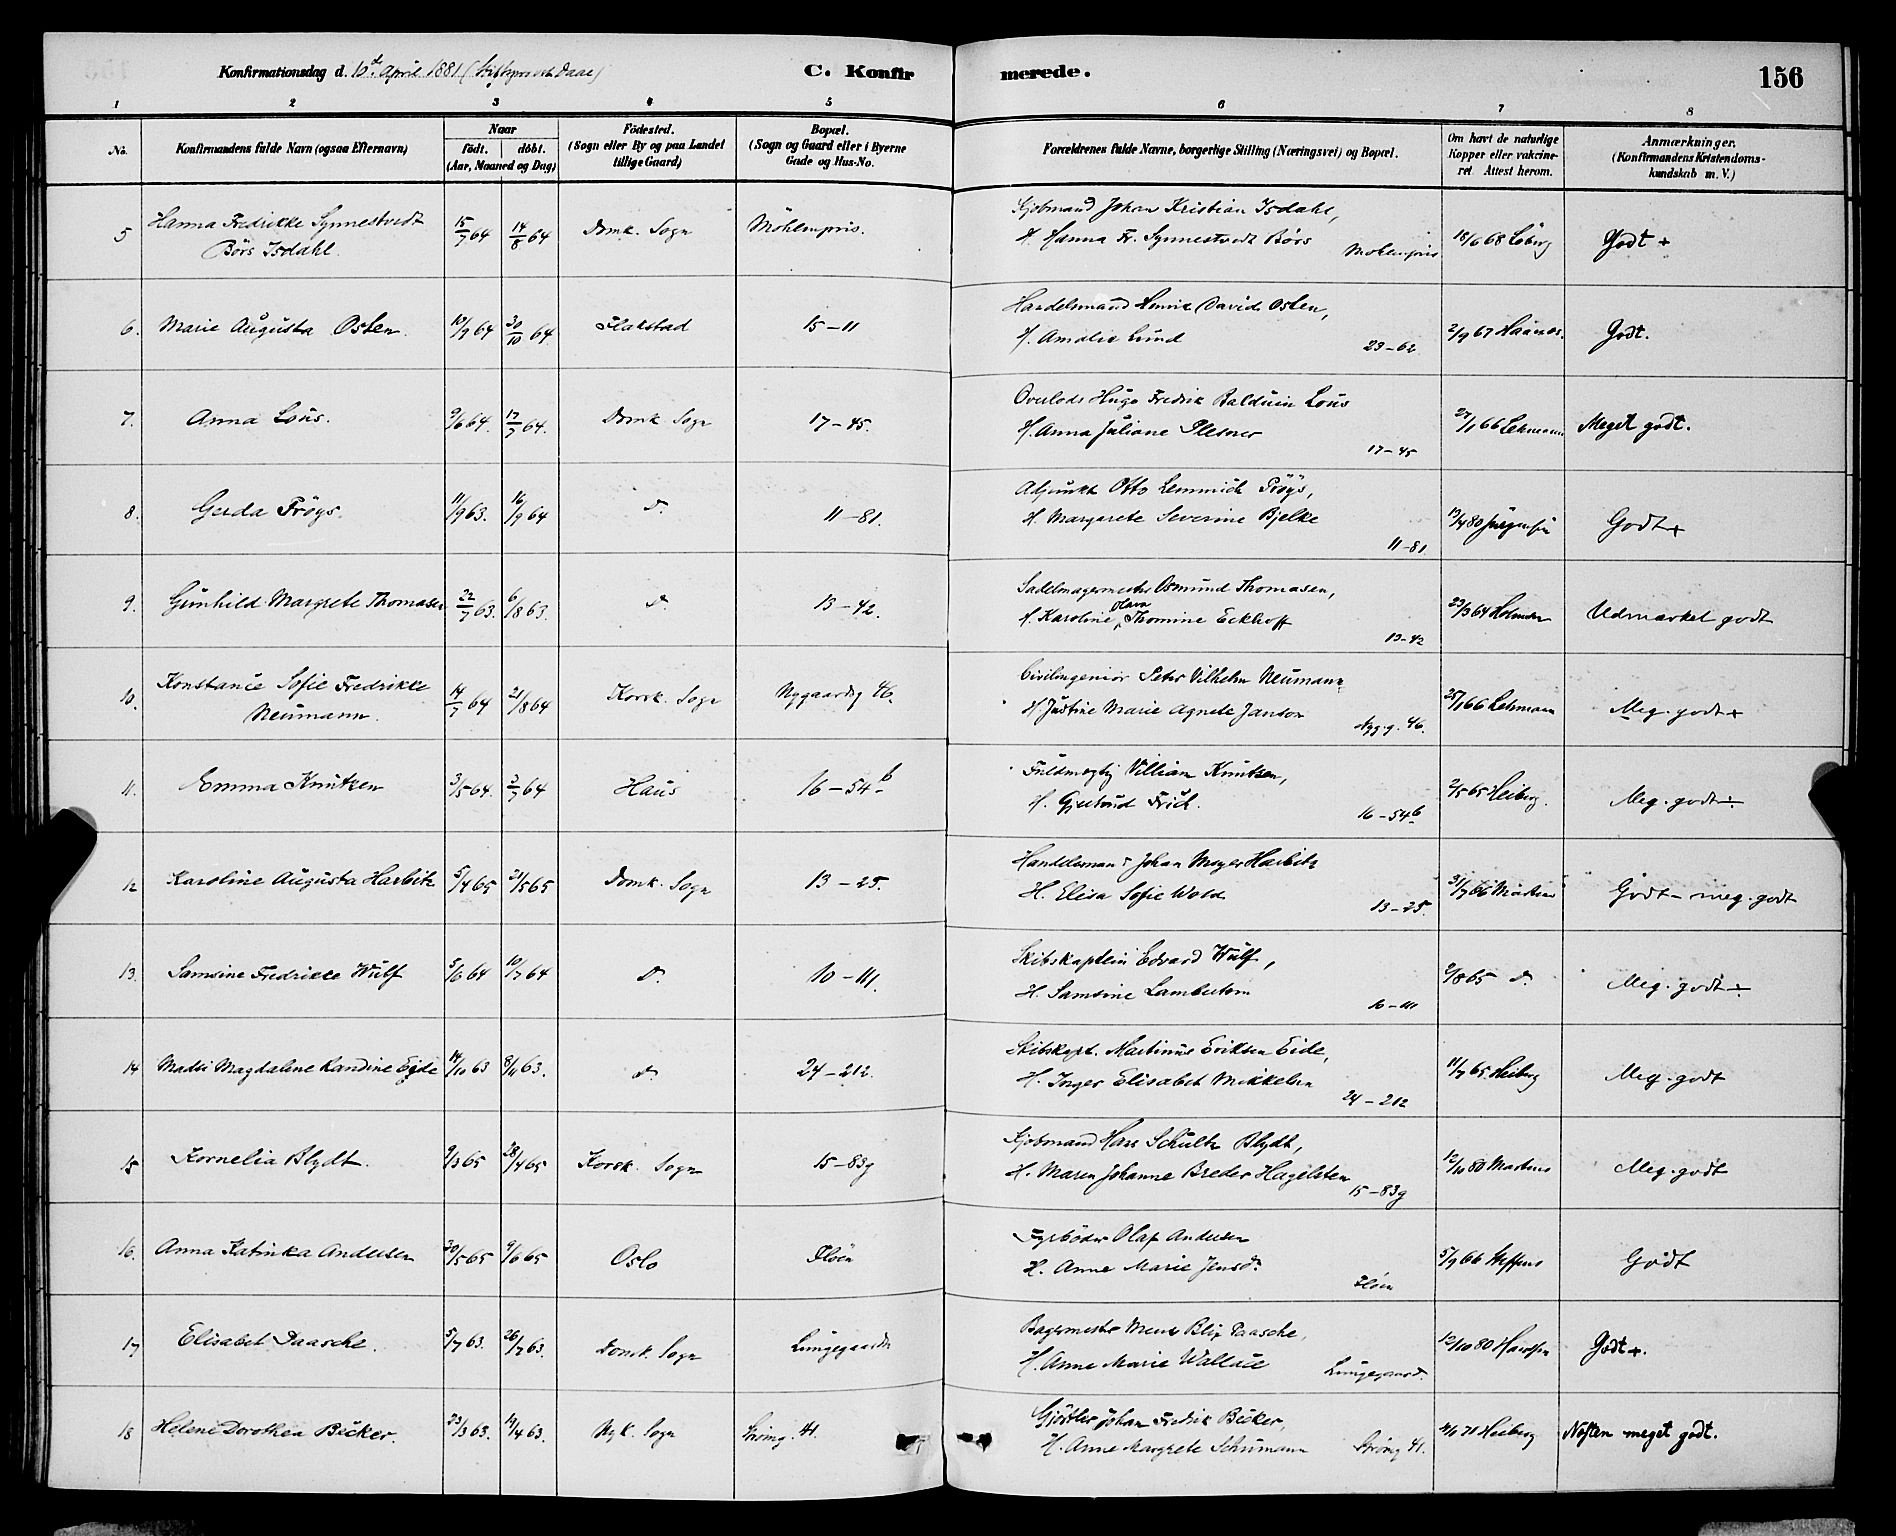 Konfirmationsdag d. 10de April 1881 (Stiftsprovst Daae) C. Konfir merede. 156
1 2 3 4 5 6 7 8
No. Konfirmandens fulde Navn (ogsaa Efternavn) Naar födt. döbt. (Aar, Maaned og Dag) Födested. (Sogn eller By og paa Landet tillige Gaard) Bopæl. (Sogn og Gaard eller i Byerne Gade og Hus-No. Forældrenes fulde Navne, borgerlige Stilling (Næringsvei) og Bopæl. Om havt de naturlige Kopper eller vakcineret Attest herom. Anmærkninger. (Konfirmandens Kristendomskundskab m. V.)
5 Hanna Fredrikke Synnestvedt Börs Isdahl. 15/7 64 14/8 64 Domk. Sogn Möhlenpris. Kjöbmand Johan Kristian Isdahl,
H. Hanna Fr. Synnestvedt Börs Möhlenpris 18/6 68 Godt +
6. Marie Augusta Osten. 19/9 64 30/10 64. Flakstad 15-11 Handelsmand Henrik David Osten,
H. Amalie Lund 23-62 2/9 67 Godt.
7. Anna Lous. 9/6 64. 17/7 64. Domk. Sogn 17-45. Overlods Hugo Fredrik Balduin Lous
H. Anna Juliane Plesner 17-45 27/1 66 Lehmann Meget godt.
8. Gerda Fröys. 11/9 63. 16/9 64 Do. 11-81. Adjunkt Otto Lemmich Fröys,
H. Margarete Severine Bjelke 11-81. 19/4 80 Godt +
9. Gunhild Margrete Thomasen 22/7 63. 6/8 63. Do. 13-42. Sadelmagermester Osmund Thomasen,
H. Karoline Olava Thomine Eckhoff 13-42 29/3 64 Udmærket godt
10. Konstance Sofie Fredrikke Neumann. 14/7 64 21/8 64 Korsk. Sogn Nygaardsg 46. Civilingeniör Peter Vilhelm Neumann
H. Justine Marie Agnete Janson Nyg.g. 46. 25/1 66 Lehmann Meg. godt +
11. Emma Knutzen 3/5 64. 3/7 64 Haus 16-54b Fuldmægtig Villian Knutzen,
H. Gjertrud Frich. 16-54b 2/5 65 Heiberg. Meg. godt ÷
12 Karoline Augusta Harbitz 5/4 65 21/5 65 Domk. Sogn 13-25. Handelsmand Johan Meyer Harbitz
H. Elisa Sofie Wold 13-25. 31/7 66 Martens Godt - meg. godt
13. Samsine Fredrikke Wulf 5/6 64 10/7 64 Do. 10-111. Skibskaptein Edvard Wulf,
H. Samsine Lambertsen 10-111 2/8 65 Do. Meg. godt ÷
14 Madsi Magdalene Randine Eide 14/10 63 8/11 63. Do. 24-212. Skibskapt. Martinus Eriksen Eide,
H. Inger Elisabet Mikkelsen 24-212 11/7 65 Heiberg Meg. godt
15 Kornelia Blydt. 2/3 65 28/4 65 Korsk. Sogn 15-83g Kjöbmand Hans Schultz Blydt,
H. Maren Johanne Breder Hagelsten 15-83g 12/10 80 Martens Meg. godt
16. Anna Katinka Andersen 30/5 65 9/6 65 Oslo Flöen Fyrböder Olaf Andersen
H. Anne Marie Jensd. Flöen 5/9 66 Steffens Godt
17 Elisabet Paasche. 5/7 63. 26/7 63. Domk. Sogn Lungegaarden Bagermester Mens Blix Paasche,
H. Anne Marie Wallace Lungegaard. 12/10 80 Godt +.
18 Helene Dorothea Bücker. 23/3 63. 19/4 63. Nyk. Sogn Strömg. 41. Gjörtler Johan Fredrik Bücker,
H. Anne Margrete Schumann Strömg 41. 71 Heiberg Næsten meget godt.